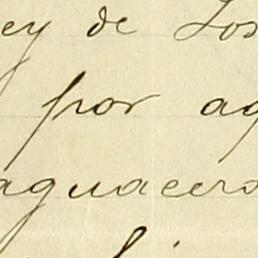 ey de Los
por ag
aguacero